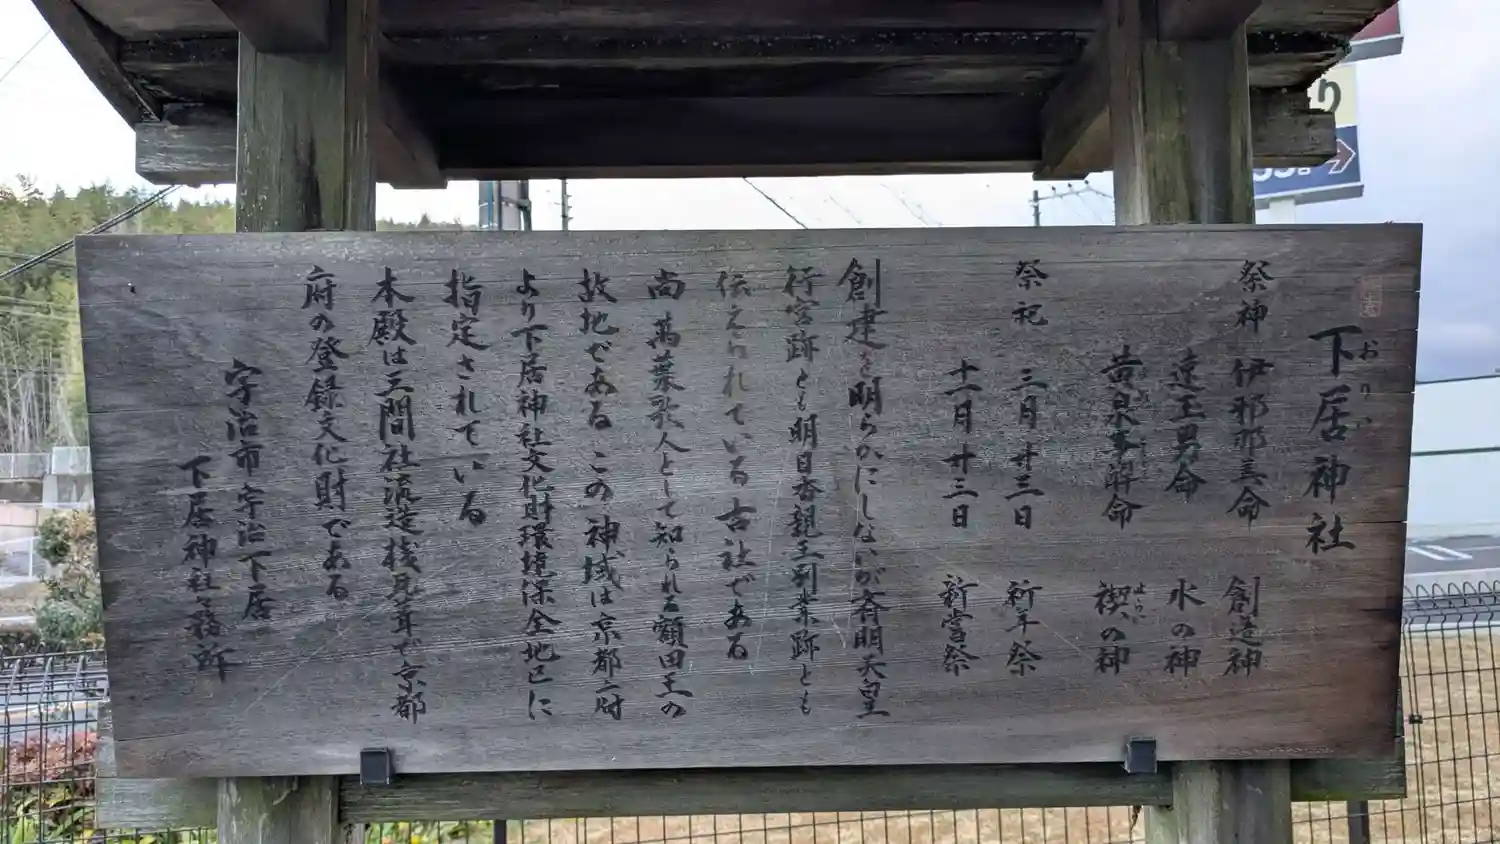 下居神社
おりい
祭神 伊邪那美命 創造神
速玉男命 水の神
黄泉事解命 禊の神
はらい
祭祀 三月廿三日 祈年祭
十一月廿三日 新嘗祭
創建を明らかにしないが斉明天皇
行宮跡とも明日香親王別業跡とも
伝えられている古社である
尚萬葉歌人として知られる額田王の
故地である この神域は京都府
より下居神社文化財環境保全地区に
指定されている
本殿は三間社流造桟瓦葺で京都
府の登録文化財である
宇治市宇治下居
下居神社社務所
り